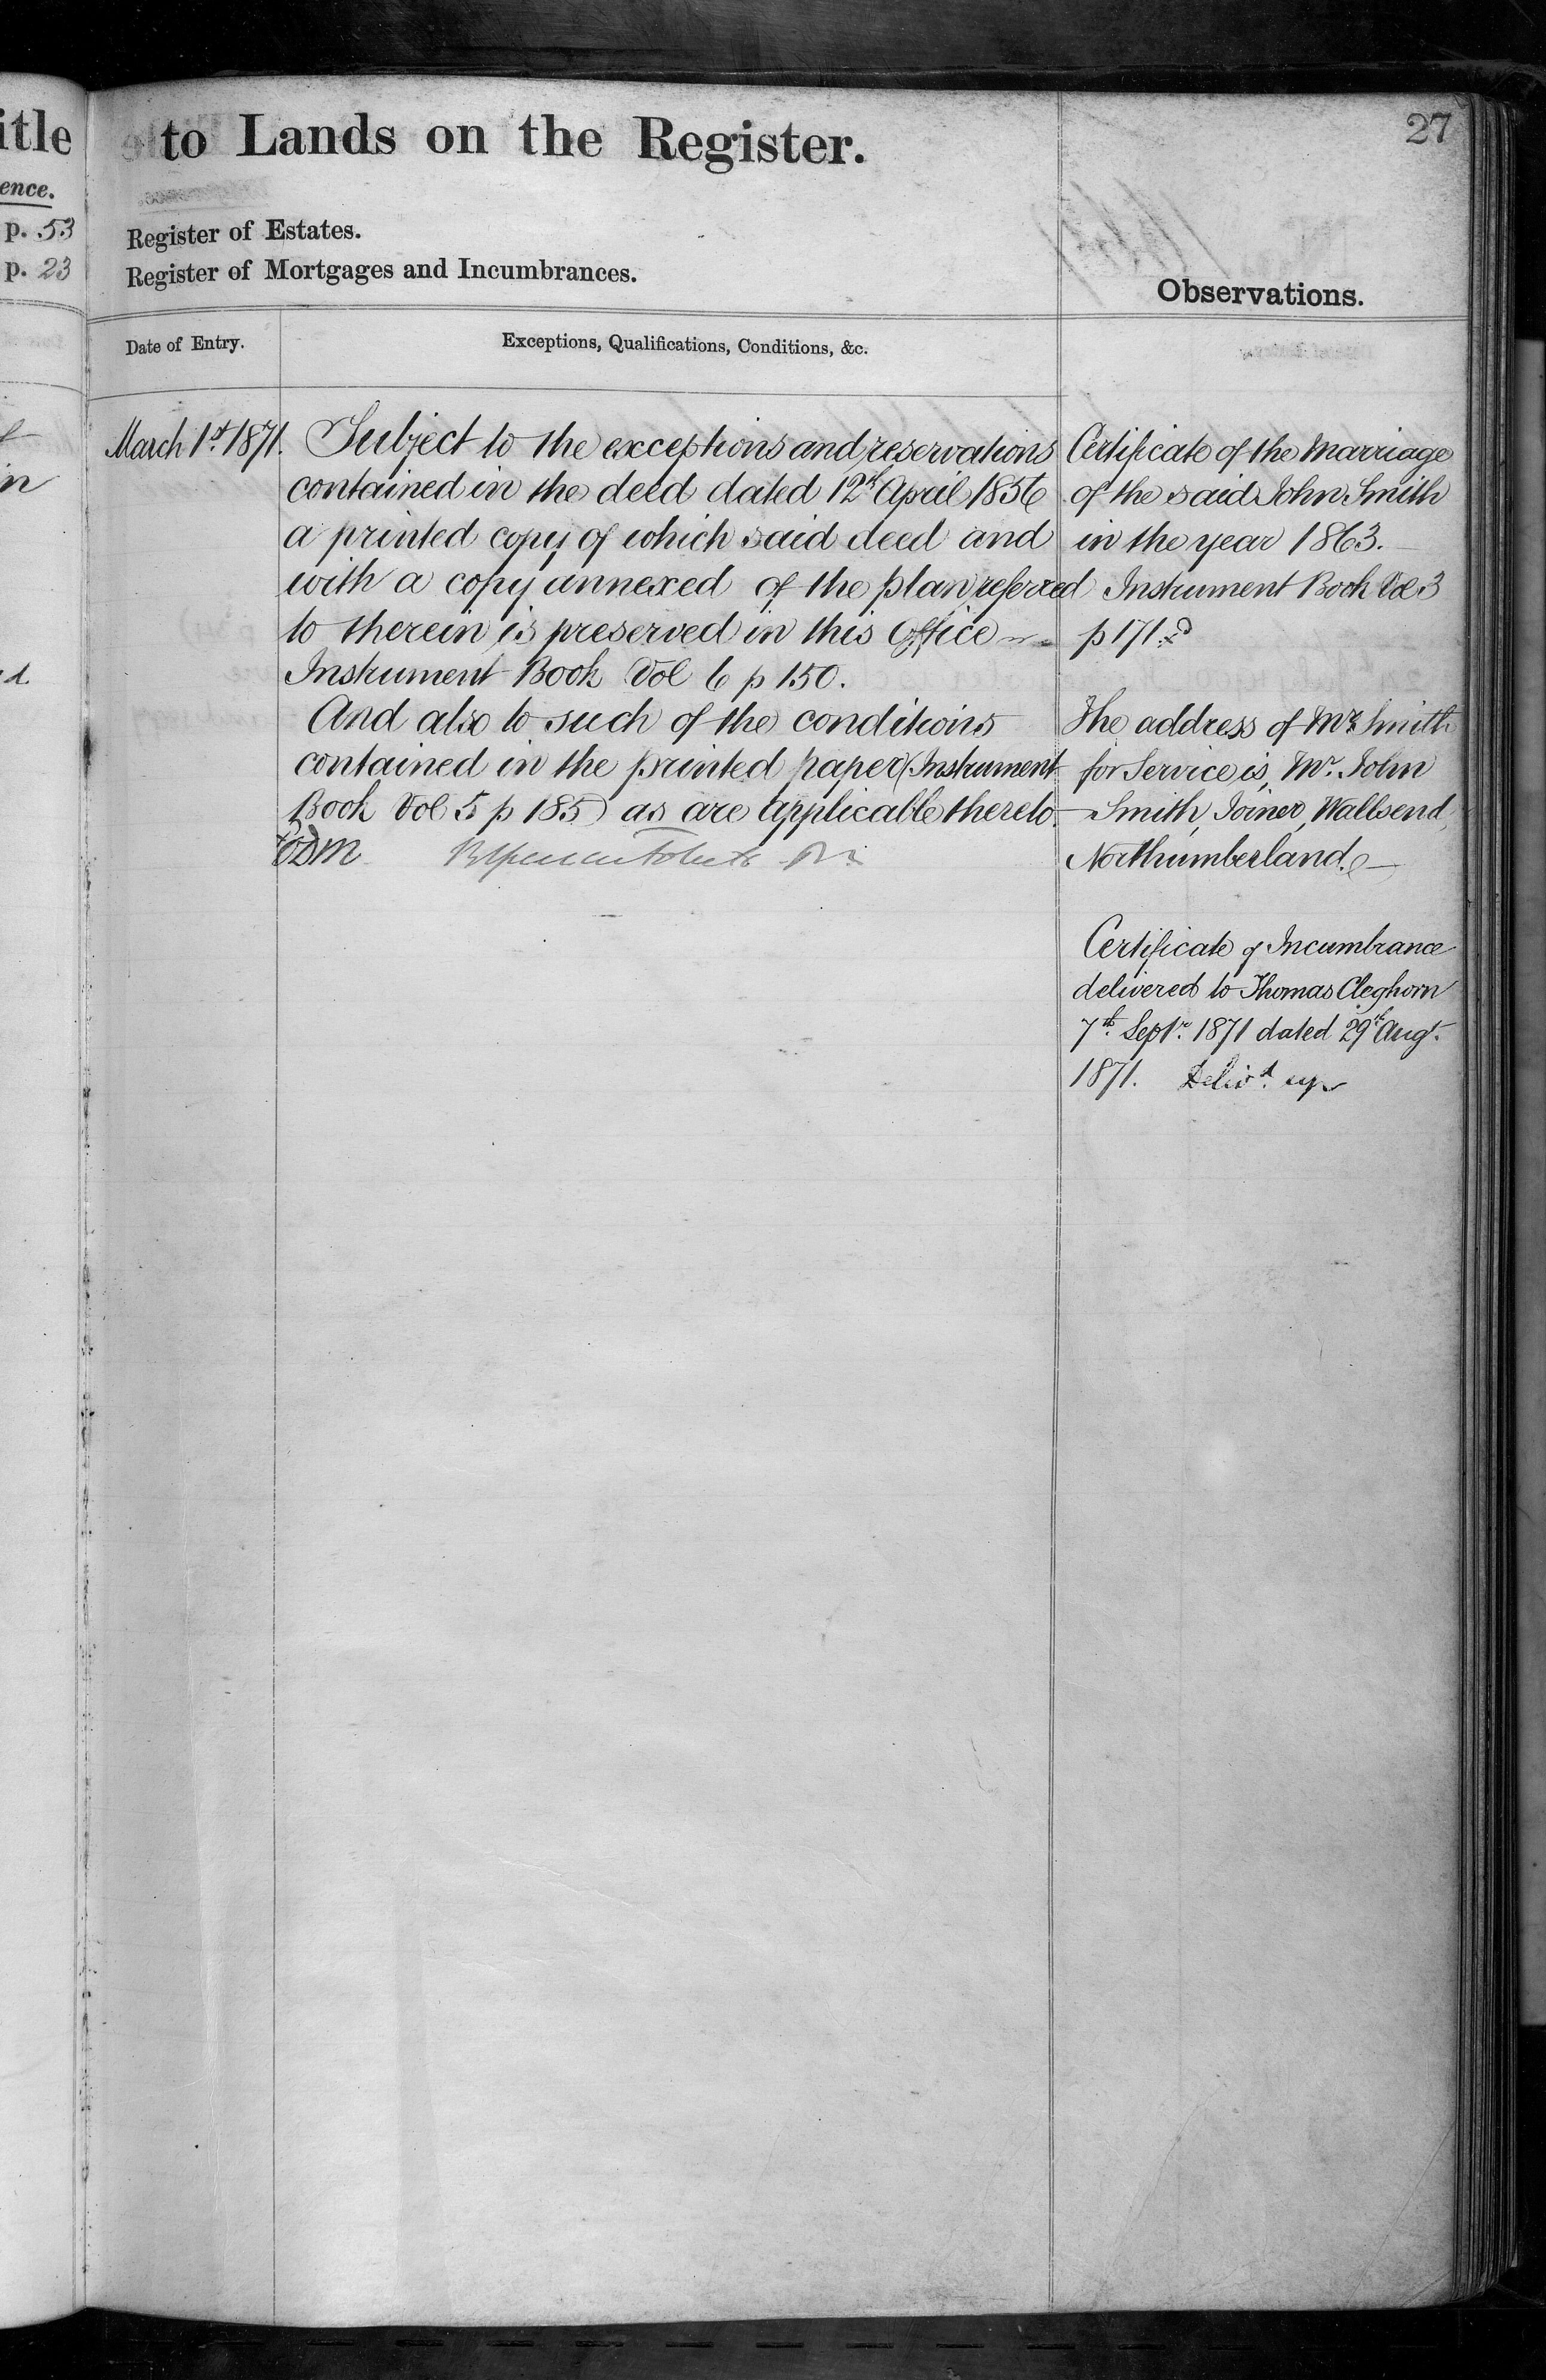 itle
ence.
p. 53
p. 23
in
to Lands on the Register.
27
Register of Estates.
Register of Mortgages and Incumbrances.
Observations.
Date of Entry.
Exceptions, Qualifications, Conditions, &c.
March 1st. 1871.
Subject to the exceptions and reservations
contained in the deed dated 12th April 1856
a printed copy of which said deed and
with a copy annexed of the plan referred
to therein is preserved in this Office
Instrument Book Vol 6 p 150.
And also to such of the conditions
contained in the printed paper (Instrument
Book Vol 5 p 185) as are applicable thereto.
Certificate of the Marriage
of the said John Smith
in the year 1863.
Instrument Book Vol 3
p 171.
The address of Mr. Smith
for Service is, Mr. John
Smith, Joiner, Wallsend,
Northumberland.
Certificate of Incumbrance
delivered to Thomas Cleghorn
7th. Septr. 1871 dated 29th Augt.
1871. Delivd. up